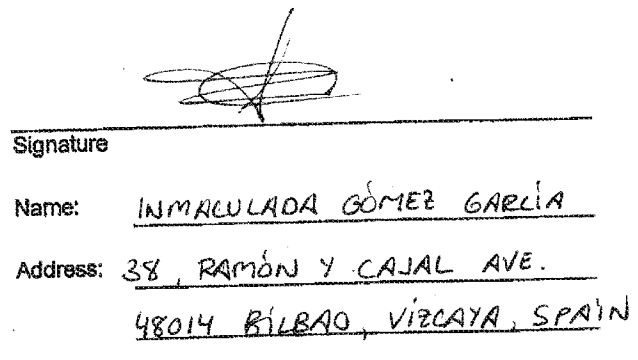 Signature
Name: INMACULADA GÓMEZ GARCÍA
Address: 38, RAMÓN Y CAJAL AVE.
48014 BILBAO, VIZCAYA, SPAIN